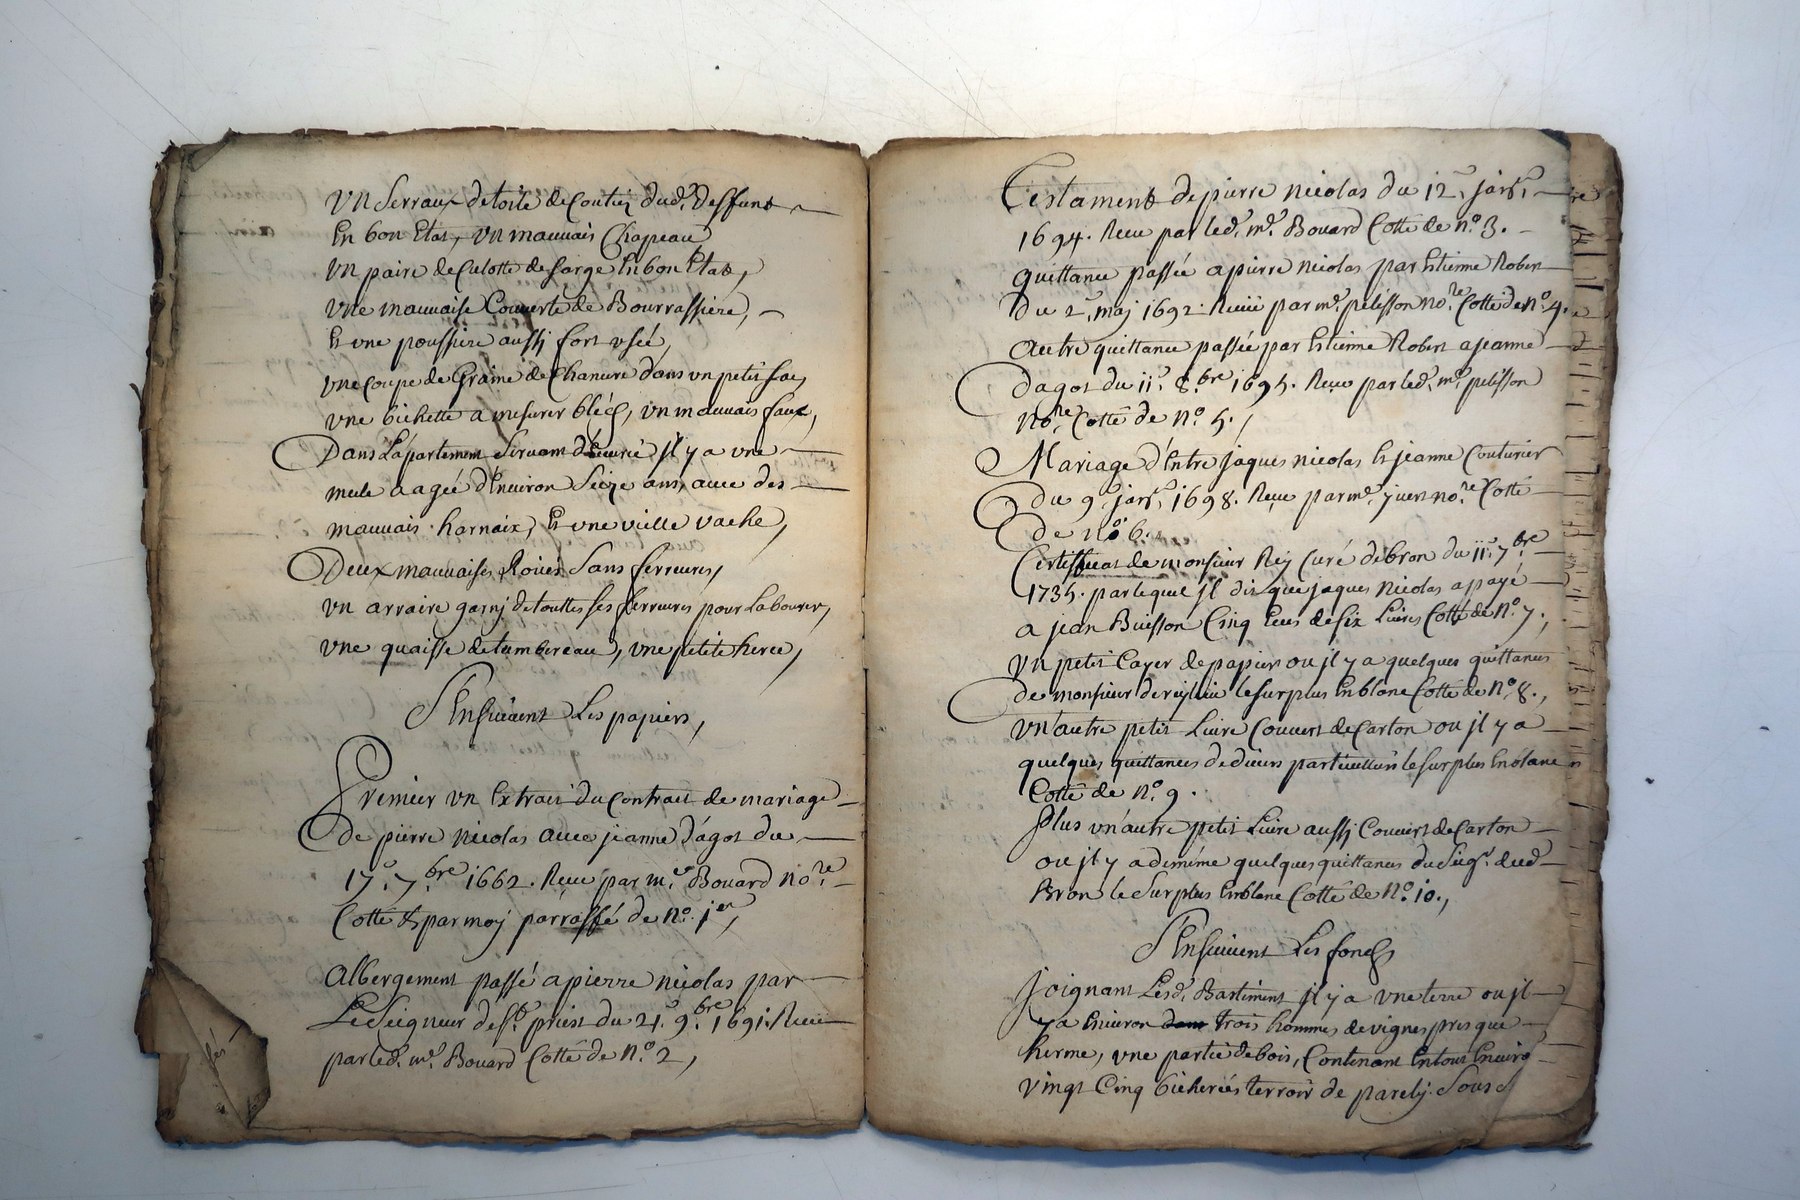 Un Serraux de toile de Coutier dud.t Deffunt
En bon Etat, Un mauvais Chapeau
Un paire de Culotte de Sarge En bon Etat,
Une mauvaise Couverte de Bourrassiere,
Et une poussiere aussj fort usée,
une Coupe de Graine de Chanvre dans un petit sac,
une bichette a mesurer bled, un mauvais faux,
Dans L'apartement Servant d'Ecurie jl y a une
mule aagée d'Environ Seize ans, avec des
mauvais harnaix, Et une vielle vache,
Deux mauvaises Roües Sans ferrures,
un arraire garnj de touttes ses ferrures pour Labourer,
une quaisse de tumbereau, une petite herce,
S'Ensuivent Les papiers,
Premier un Extrait du Contrait de mariage
de pierre nicolas avec jeanne d'agot du
17.e 7.bre 1662. Reçu par m.e Bouard no.re
Cotté & par moj parraffé de N.o 1er,
Albergement passé a pierre nicolas par
Le Seigneur de S.t priest du 21.e 9.bre 1691. Receu
par led. m.e Bouard Cotté de N.o 2,
Testament de pierre nicolas du 12.e janv.r
1694. Receu par led. m.e Bouard Cotté de n.o 3.
quittance passée a pierre nicolas par Etienne Robert
Du 2.e maj 1692. Receu par m.e pelisson no.re Cotté de n.o 4.
Autre quittance passée par Etienne Robert a jeanne
Dagot du 11.e 8.bre 1695. Reçue par led. m.e pelisson
no.re Cotté de N.o 5.,
Mariage d'Entre jaques nicolas Et jeanne Couturier
Du 9.e janv.r 1698. Reçu par m.e yuen no.re Cotté
de No 6.
Certifficat de monsieur Rey Curé de bron du 11.e 7.bre
1735. par lequel jl dit que jaques nicolas a payé
a jean Buisson Cinq Ecus de six Livres Cotté de N.o 7.,
Un petit Cayer de papier ou jl y a quelques quittances
de monsieur le surplus En blanc Cotté de N.o 8.,
Un autre petit Livre Couvert de Carton ou jl y a
quelques quittances de divers particuliers le surplus En blanc
Cotté de N.o 9.
Plus un autre petit Livre aussj Couvert de Carton
ou jl y a de même quelques quittances du Seig.r dud.
Bron le surplus En blanc Cotté de N.o 10.,
S'Ensuivent Les fonds
Joignant Lesd. Bastiment jl y a une terre ou jl
y a Environ trois hommes de vignes presque
herme, une partie de bois, Contenant En tout Environ
vingt Cinq bicherées terroir de parely. Sous